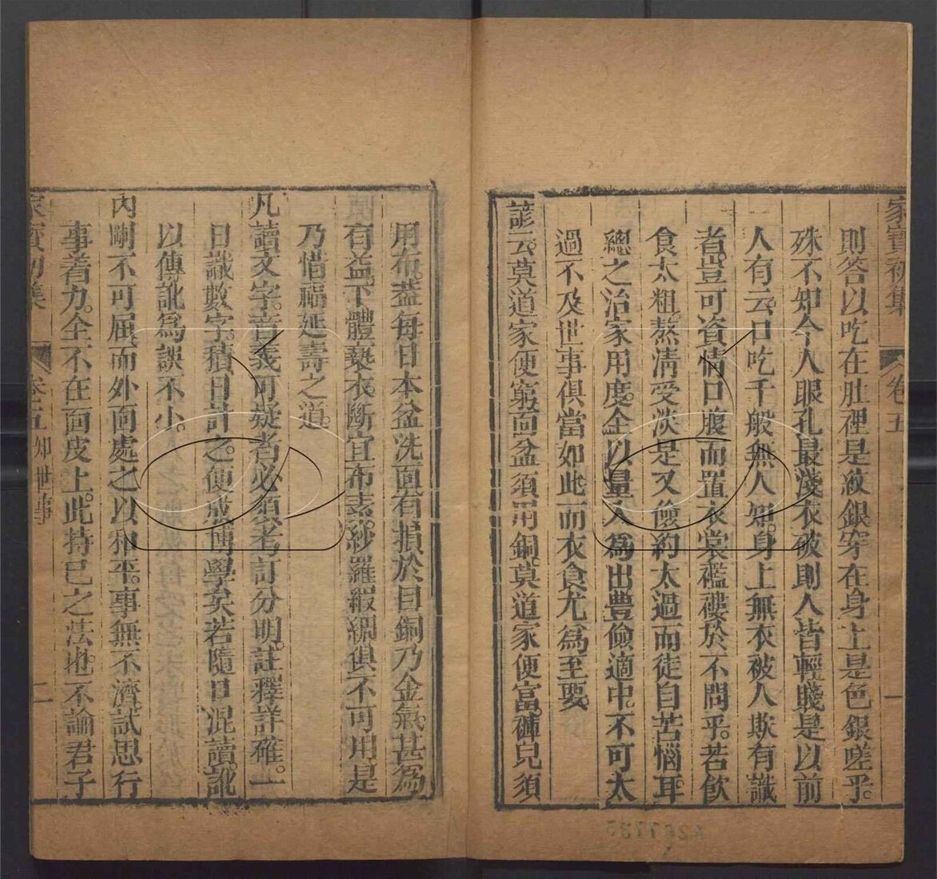 家寶初集 卷五 一
則答以吃在肚裡是液銀穿在身上是色銀嗟乎
殊不知今人眼孔最淺衣破則人皆輕賤是以前
人有云口吃千般無人知身上無衣被人欺有識
者豈可資情口腹而置衣裳襤褸於不問乎若飲
食太粗熬清受淡是又儉約太過而徒自苦惱耳
總之治家用度全以量入為出豐儉適中不可太
過不及世事俱當如此而衣食尤為至要
諺云莫道家便窮面盆須用銅莫道家便富褲兒須
用布蓋每日本盆洗面有損於目銅乃金氣甚為
有益下體褻衣斷宜布素紗羅緞綢俱不可用是
乃惜福延壽之道
凡讀文字音義可疑者必須考訂分明註釋詳確一
日識數字積日計之便成博學矣若隨口混讀訛
以傳訛為誤不小
內剛不可屈而外面處之以和平事無不濟試思行
事着力全不在面皮上此持己之法也不論君子
家寶初集 卷五 知世事 二